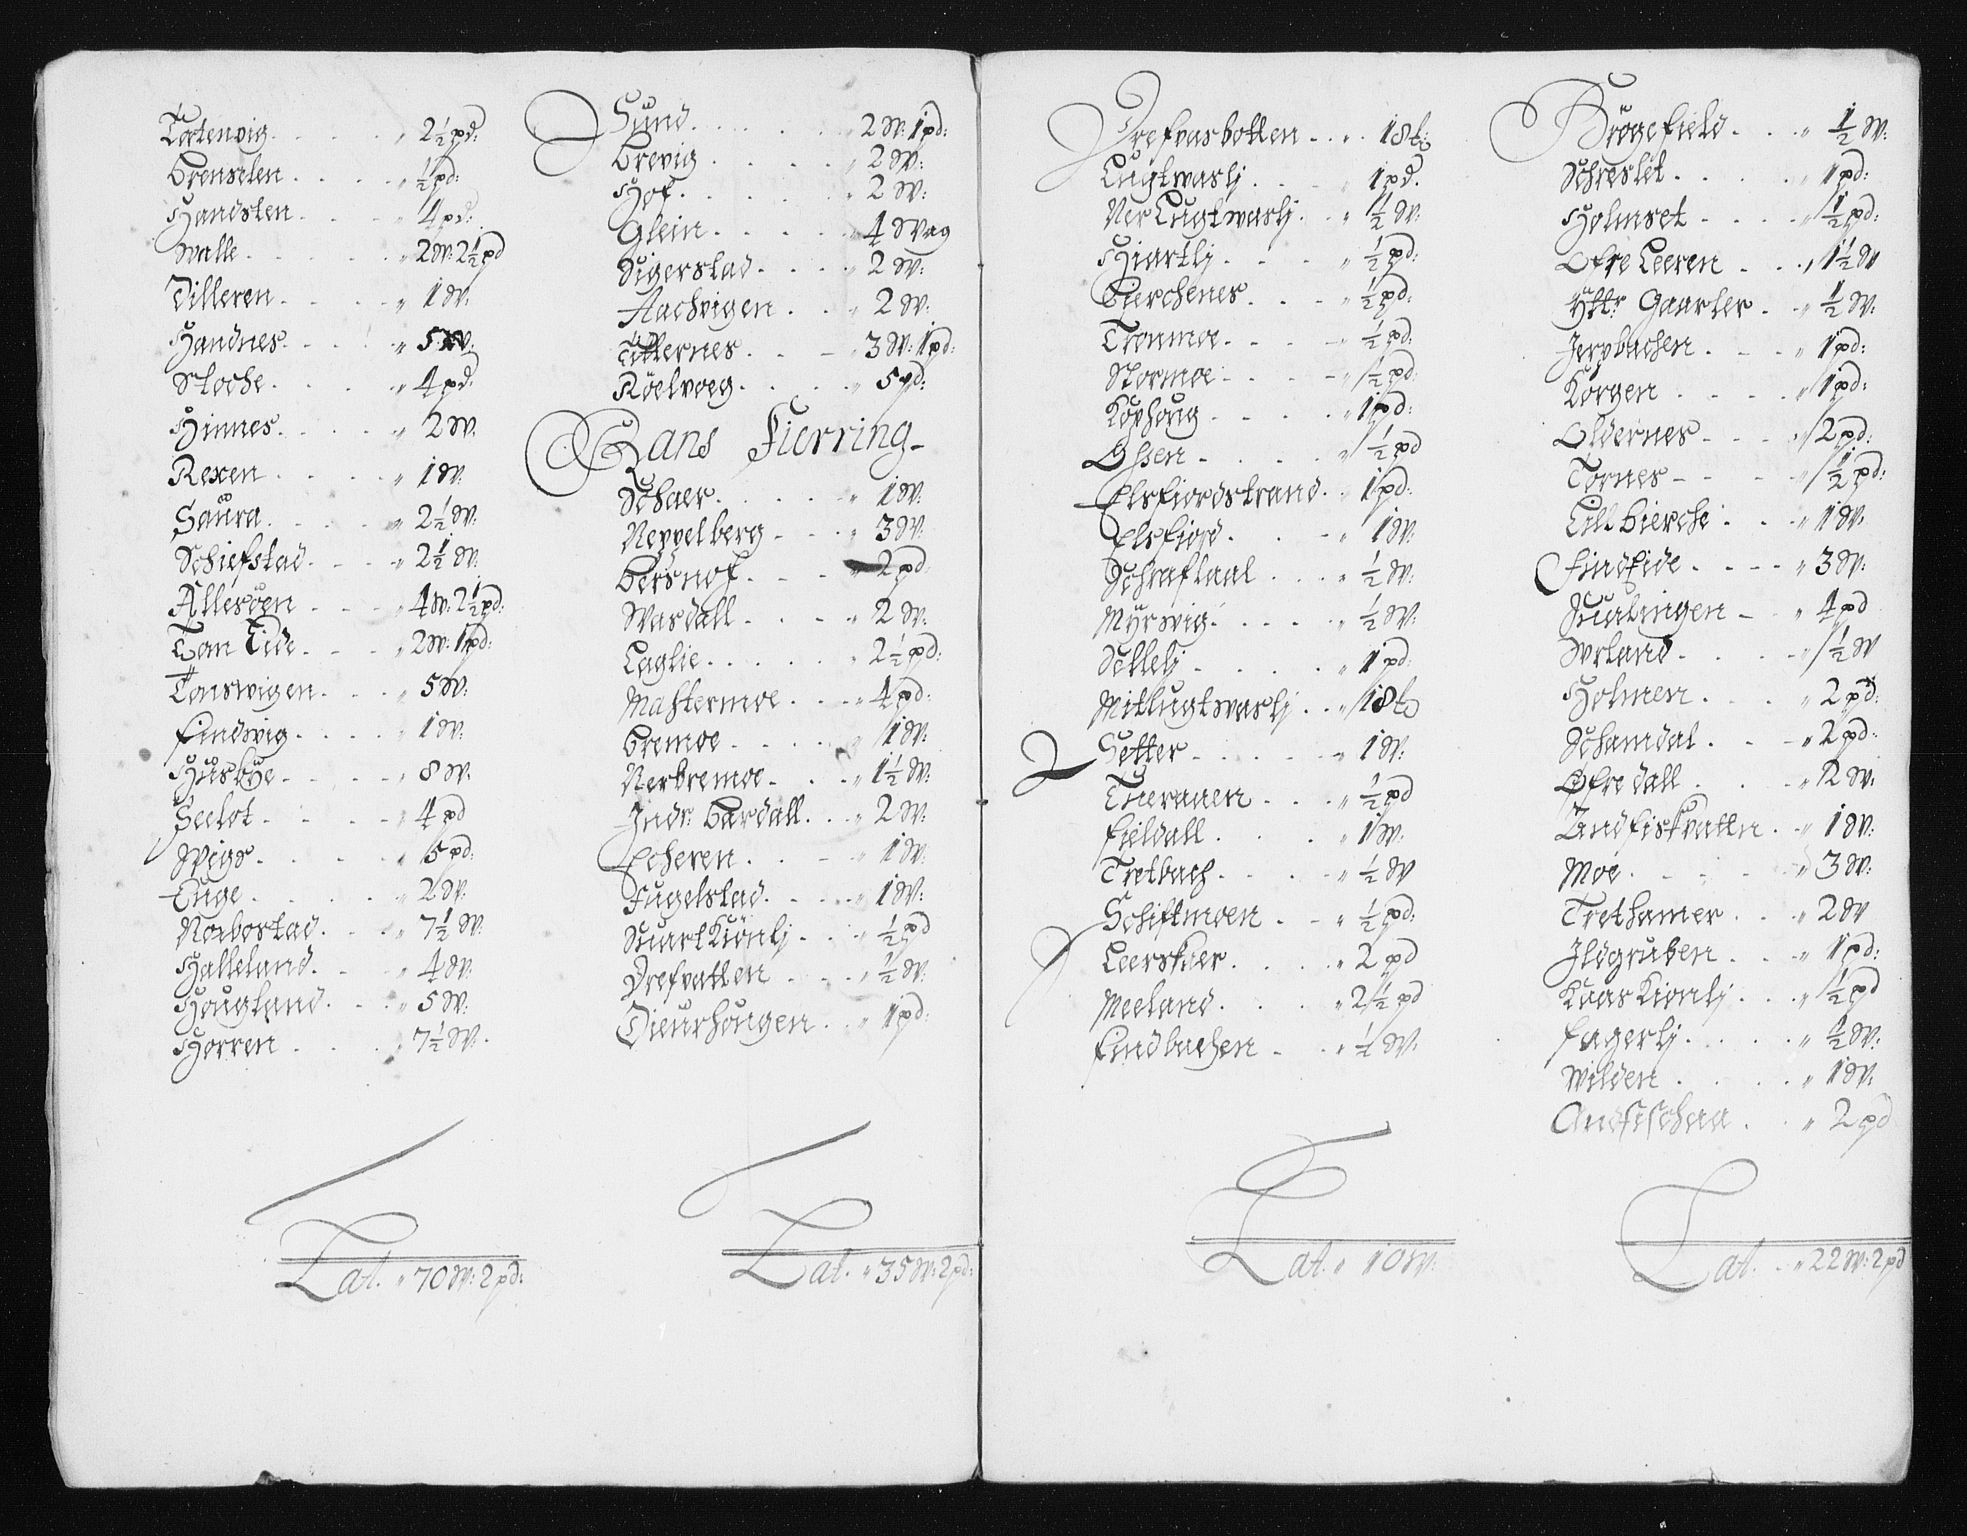 Tortenvig . . . . „ 2½ pd:
Brenselen . . . . „ ½ pd:
Handsten . . . „ 4 pd:
Walle . . . . . „ 2 W: 2½ pd
Tilleren . . . . „ 1 W:
Handnes . . . . „ 5 W.
Stoche . . . . „ 4 pd:
Hinnes . . . . „ 2 W.
Rexen . . . . „ 1 W.
Saura . . . . „ 2½ W:
Schiefstad . . . „ 2½ W.
Allesøen . . . „ 4 W: 2½ pd:
Tan Eide . . . „ 2 W: 1 pd:
Tonswigen . . . „ 5 W:
Findwig . . . . „ 1 W:
Husbye . . . . „ 8 W.
Seelot . . . . „ 4 pd
Wigs . . . . „ 5 pd:
Enge . . . . . „ 2 W:
Norbostad . . . „ 7½ W.
Halleland . . . „ 4 W:
Hougland . . . „ 5 W:
Horren . . . . „ 7½ W:
Lat. „ 70 W: 2 pd:
Sund . . . . . „ 2 W: 1 pd:
Brevig . . . . „ 2 W:
Hof . . . . . „ 2 W:
Glein . . . . . „ 4 Wag
Sigerstad . . . . „ 2 W:
Aachvigen . . . „ 2 W:
Titternes . . . „ 3 W: 1 pd:
Röelvoeg . . . . „ 5 pd:
Rans Fierring
Schaer . . . . „ 1 W:
Neppelberg . . . „ 3 W:
Bersnof . . . „ 2 pd:
Wasdall . . . . „ 2 W:
Laglie . . . . . „ 2½ pd:
Mastermoe . . . „ 4 pd:
Bremoe . . . . „ 1 W:
Nerbremoe . . . „ 1½ W:
Indr: Bardall . . . „ 2 W:
Echeren . . . . „ 1 W:
Fugelstad . . . . „ 1 W:
Suart Kionlj . . . „ ½ pd
Drefvatten . . . „ ½ W.
Dieurhougen . . „ 1 pd:
Lat. „ 35 W: 2 pd:
Drefvasbotten . . „
Lugtwaslj . . . „ 1 pd.
Ner Lugtwaslj . . „ ½ W.
Hiartlj . . . . „ ½ pd:
Bierchenes . . . „ ½ pd:
Tronmoe . . . . „ ½ pd:
Stormoe . . . . „ ½ pd:
Kophoug . . . . „ 1 pd:
Ossen . . . . „ ½ pd
Elsfiordstrand . . „ 1 pd:
Elsfiord . . . „ 1 W:
Schraflaal . . . „ ½ W:
Myrwig . . . . „ ½ W:
Sellelj . . . . . „ 1 pd:
Mitlugtwaslj . . „
Setter . . . . . „ 1 W:
Tuerauen . . . „ ½ pd
Fieldall . . . . „ 1 W.
Tretbach . . . . „ ½ W
Schiftmoen . . „ ½ pd:
Leerskaer . . . . „ 2 pd
Meeland . . . . „ 2½ pd
Findbachen . . „ ½ W:
Lat. „ 10 W:
Brøgefield . . . „ ½ W:
Schreslet . . . . „ 1 pd:
Holmset . . . . „ ½ pd:
Øfre Leeren . . . „ 1½ W
Yttr Gaarler . . „ ½ W.
Jerpbachen . . . „ 1 pd:
Korgen . . . . „ 1 pd:
Oldernes . . . „ 2 pd:
Tornes . . . . „ ½ pd:
Lill Bierche . . . „ 1 W:
Find Eide . . . . „ 3 W:
Stualingen . . „ 4 pd
Urland . . . . „ ½ W
Holmen . . . . „ 2 pd:
Schamdal . . . „ 2 pd:
Øfredall . . . . „ 2 W:
Andfiskvatln . . „ 1 W:
Moe . . . . . „ 3 W:
Trethamer . . . „ 2 W
Ildgruben . . . „ 1 pd:
Kaas Kionlj . . . „ ½ pd
Fagerlj . . . . „ ½ W:
Wilden . . . . „ 1 W:
Andfischaa . . . „ 2 pd
Lat. . „ 22 W: 2 pd